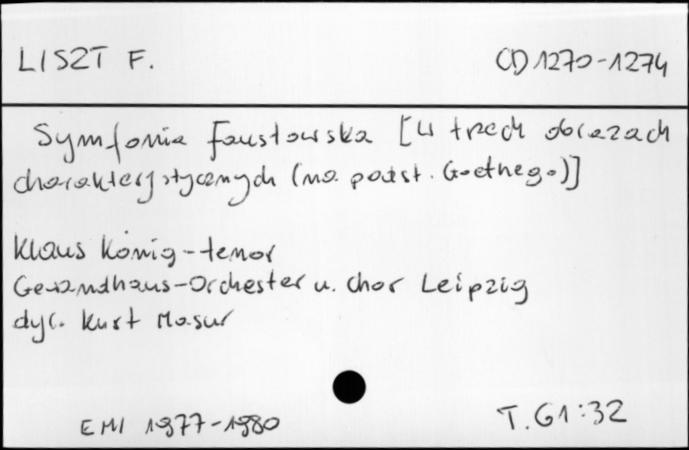 LISZT F.
CD 1270-1274
Symfonia Faustowska [W trzech obrazach
charakterystycznych (na podst. Goethego)]
Klaus König - tenor
Gewandhaus-Orchester u. Chor Leipzig
dyr. Kurt Masur
EMI 1977-1980
T. 61:32